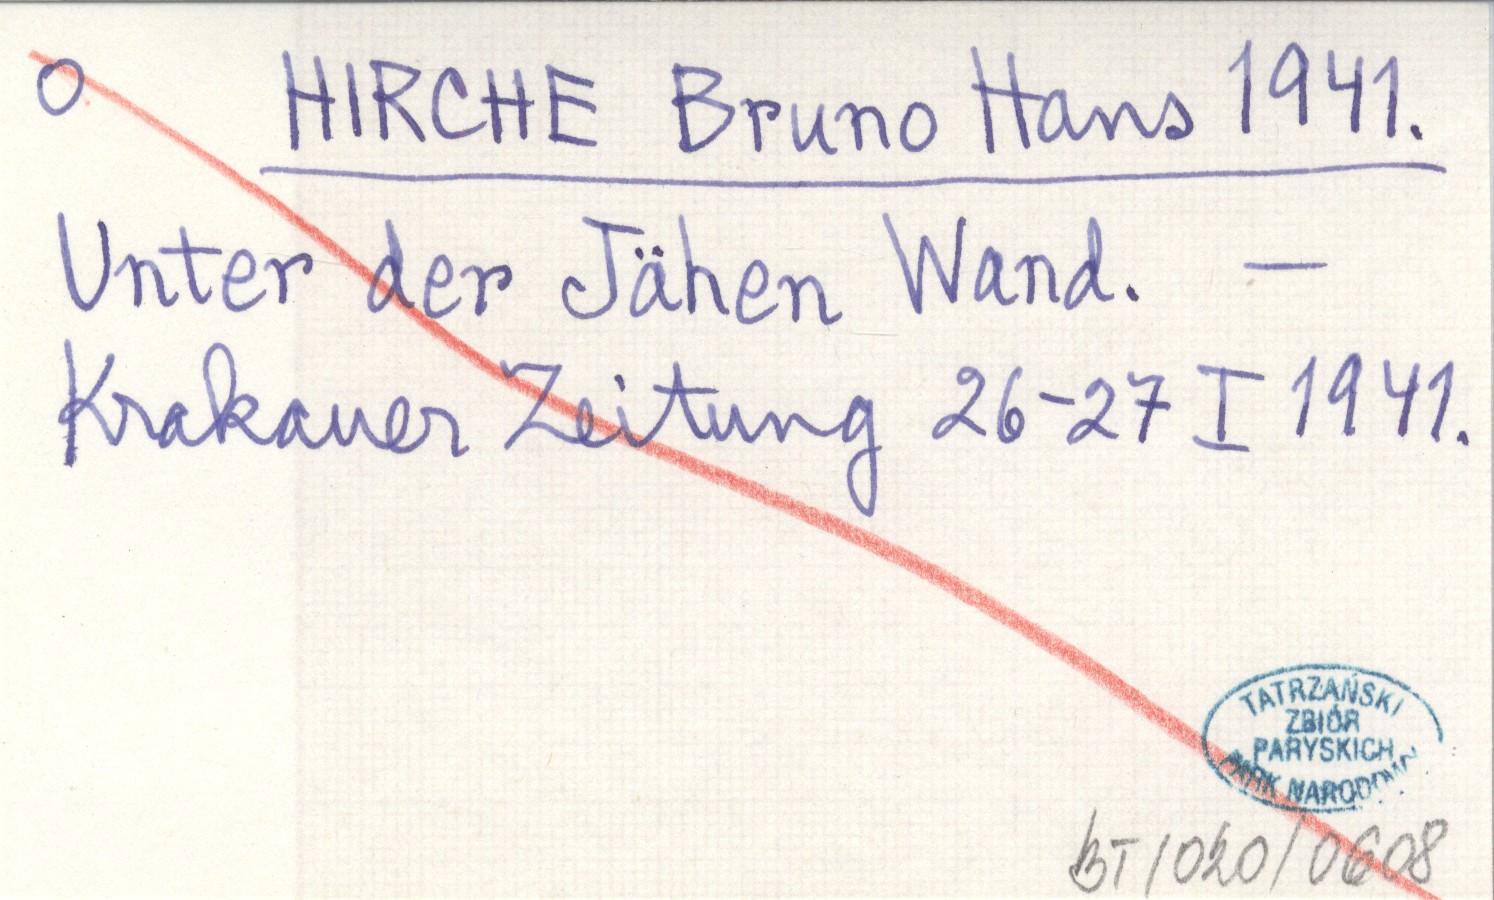 O HIRCHE Bruno Hans 1941.
Unter der Jähen Wand. —
Krakauer Zeitung 26-27 I 1941.
TATRZAŃSKI
ZBIÓR
PARYSKICH
PARK NARODOWY
BT/020/0608